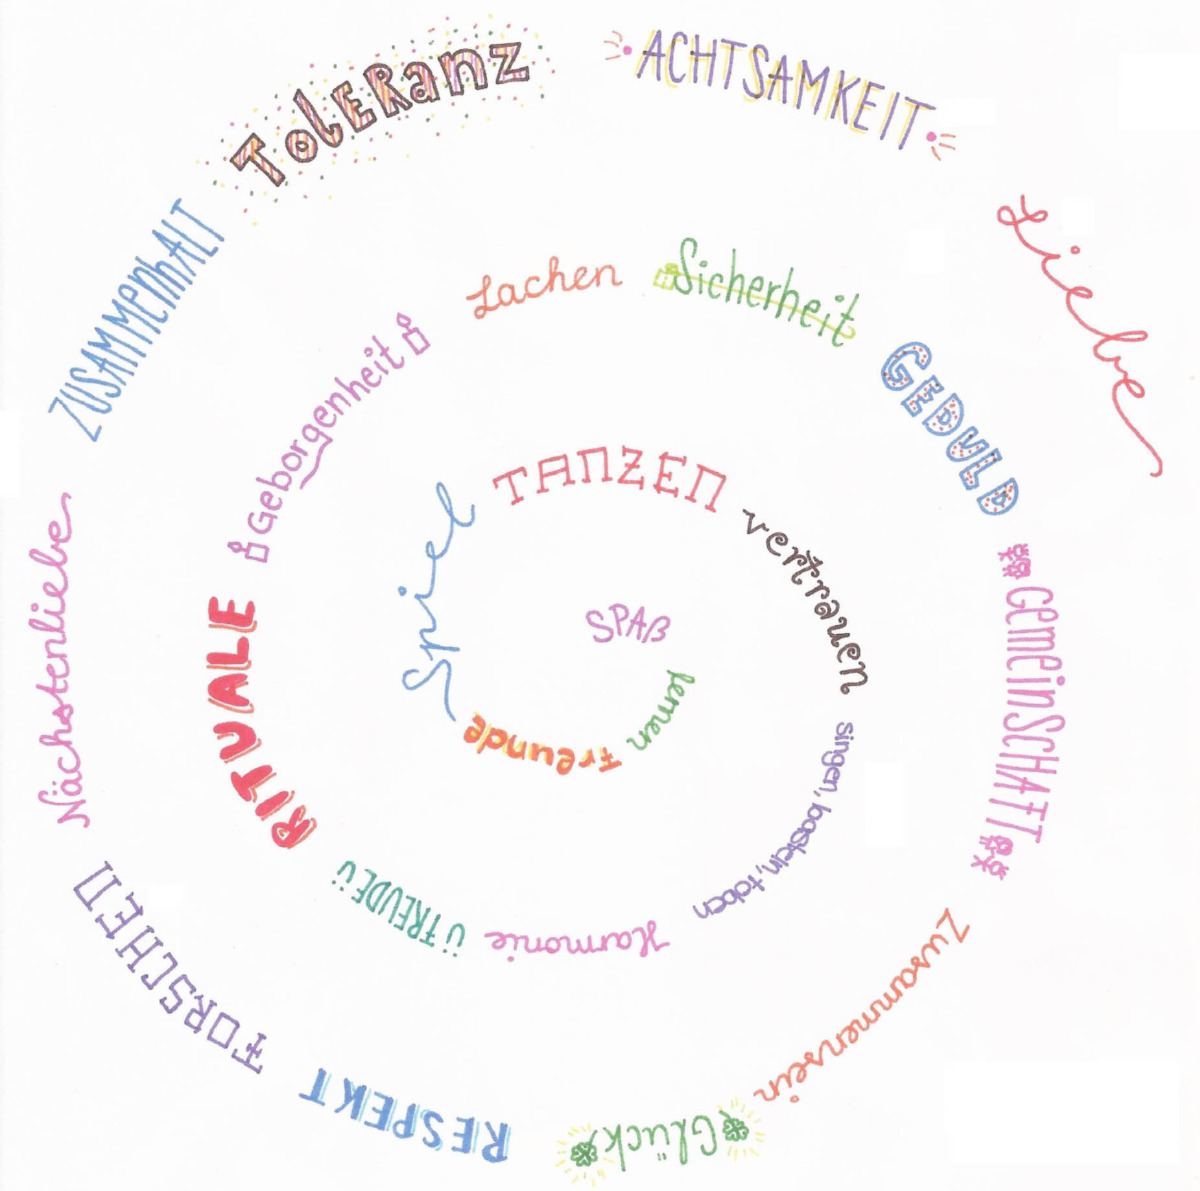 SPAß
lernen
Freunde
Spiel
TANZEN
vertrauen
singen, basteln, toben
Harmonie
FREUDE
RITUALE
Geborgenheit
Lachen
Sicherheit
GEDULD
GEMEINSCHAFT
Zusammensein
Glück
RESPEKT
FORSCHEN
Nächstenliebe
ZUSAMMENhALT
TOlERanZ
ACHTSAMKEIT
Liebe